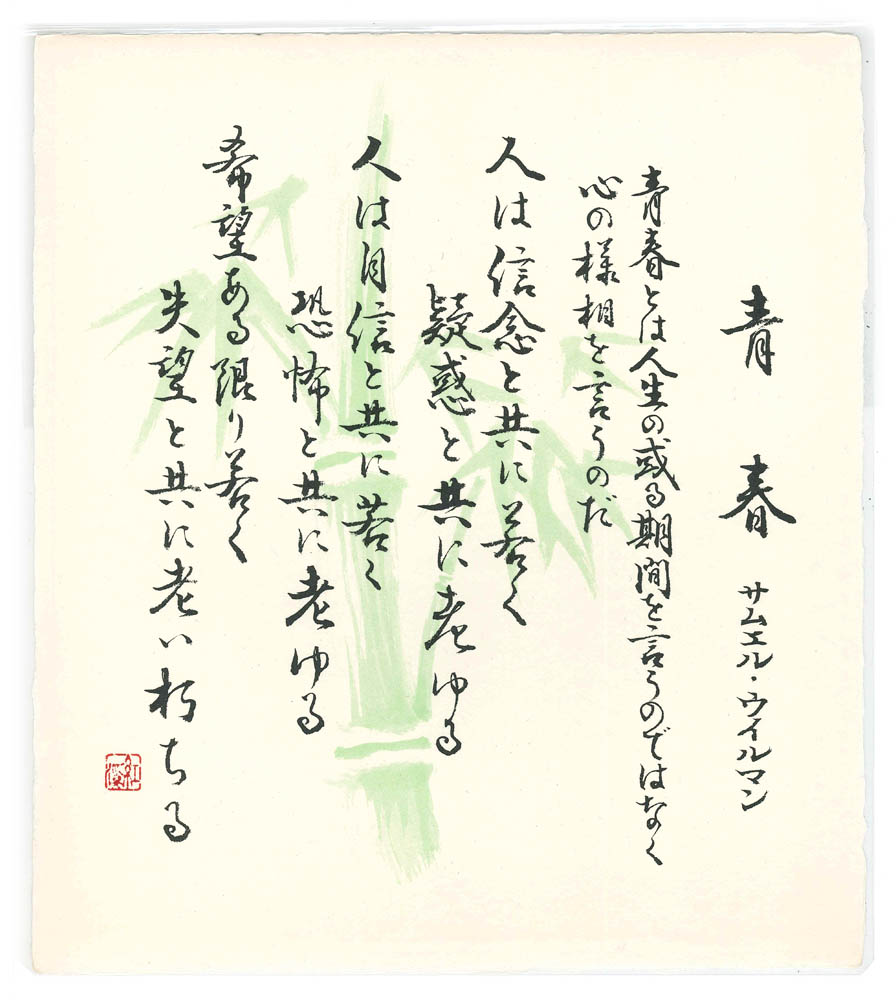 青春 サムエル・ウイルマン
青春とは人生の或る期間を言うのではなく
心の様相を言うのだ
人は信念と共に若く
疑惑と共に老ゆる
人は自信と共に若く
恐怖と共に老ゆる
希望ある限り若く
失望と共に老い朽ちる